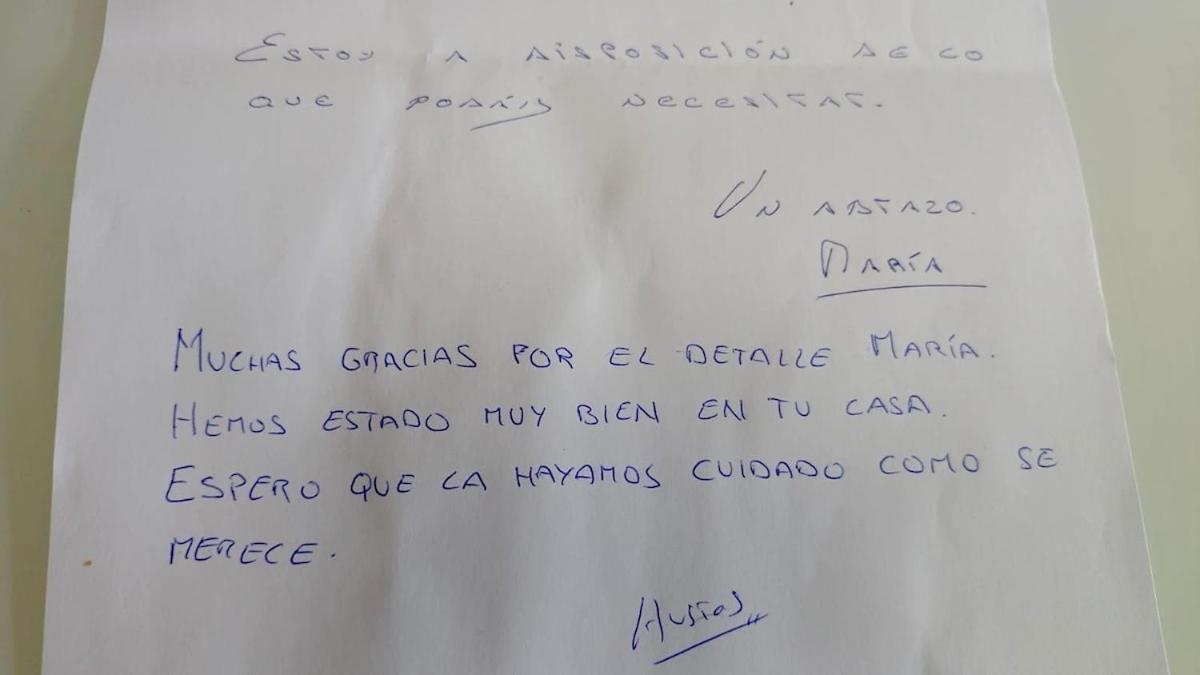 ESTOY A DISPOSICIÓN DE LO
QUE PODÁIS NECESITAR.
UN ABRAZO.
MARÍA
MUCHAS GRACIAS POR EL DETALLE MARÍA.
HEMOS ESTADO MUY BIEN EN TU CASA.
ESPERO QUE LA HAYAMOS CUIDADO COMO SE
MERECE.